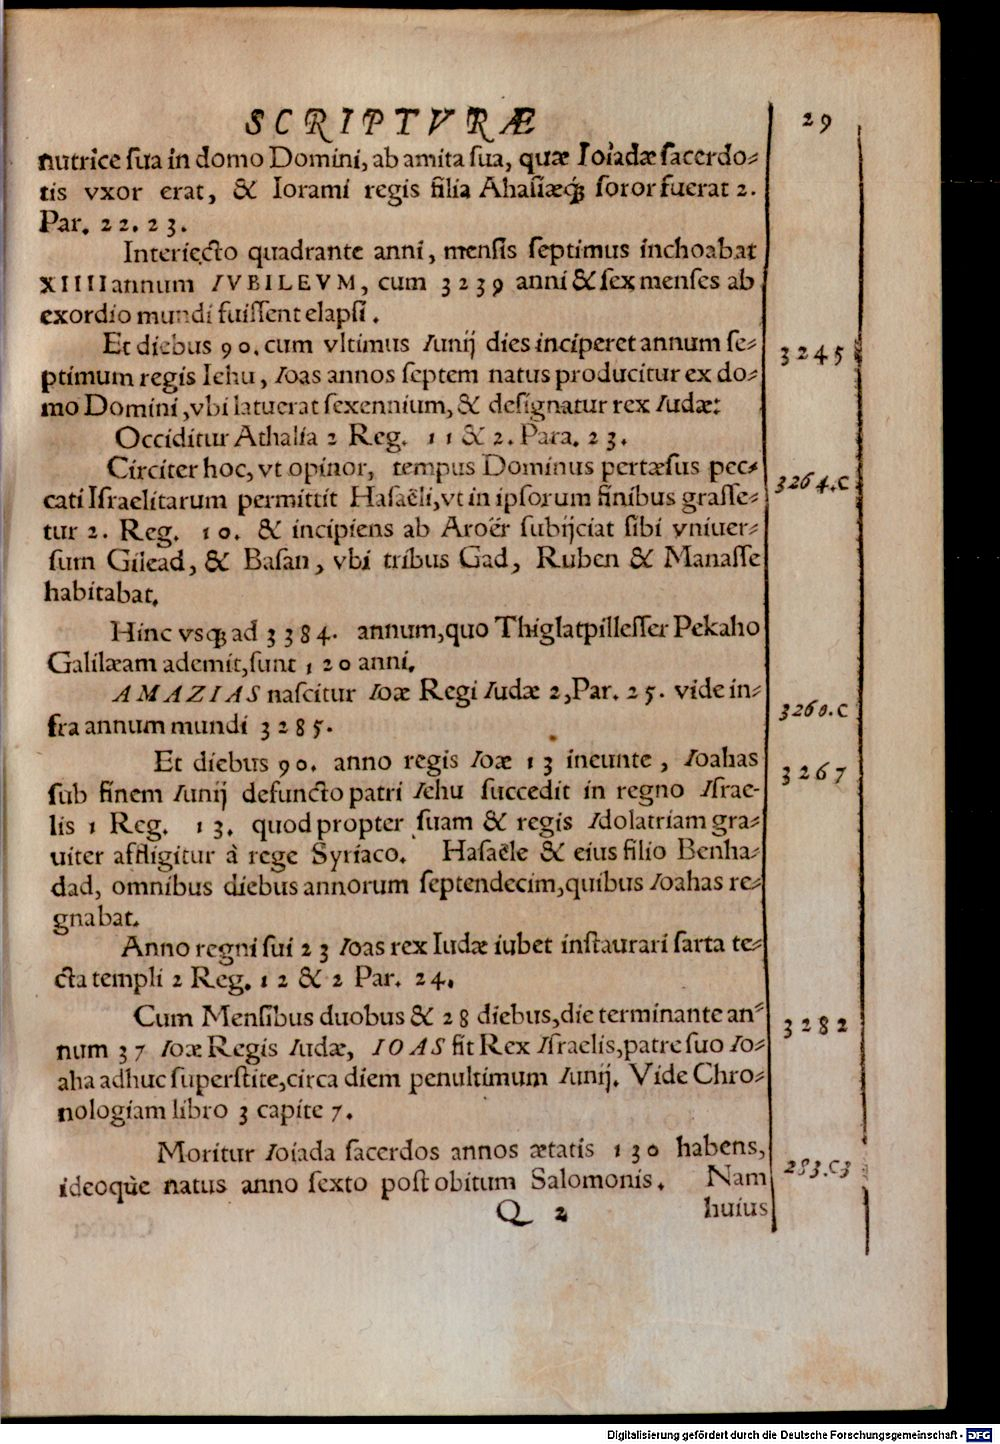 SCRIPTVRÆ 29
nutrice sua in domo Domini, ab amita sua, quæ Ioiadæ sacerdo⸗
tis vxor erat, & Iorami regis filia Ahasiæq́ꝫ soror fuerat 2.
Par. 22. 23.
Interiecto quadrante anni, mensis septimus inchoabat
XIIII annum IVBILEVM, cum 3239 anni & sex menses ab
exordio mundi fuissent elapsi.
Et diebus 90. cum vltimus Iunij dies inciperet annum se⸗ 3245
ptimum regis Iehu, Ioas annos septem natus producitur ex do⸗
mo Domini, vbi latuerat sexennium, & designatur rex Iudæ:
Occiditur Athalia 2 Reg. 11 & 2. Para. 23.
Circiter hoc, vt opinor, tempus Dominus pertæsus pec⸗ 3264.C
cati Israelitarum permittit Hasaëli, vt in ipsorum finibus grasse⸗
tur 2. Reg. 10. & incipiens ab Aroër subijciat sibi vniuer⸗
sum Gilead, & Basan, vbi tribus Gad, Ruben & Manasse
habitabat.
Hinc vsqꝫ ad 3384. annum, quo Thiglatpillesser Pekaho
Galilæam ademit, sunt 120 anni.
AMAZIAS nascitur Ioæ Regi Iudæ 2, Par. 25. vide in⸗ 3260.C
fra annum mundi 3285.
Et diebus 90. anno regis Ioæ 13 ineunte, Ioahas 3267
sub finem Iunij defuncto patri Iehu succedit in regno Israe-
lis 1 Reg. 13. quod propter suam & regis Idolatriam gra⸗
uiter affligitur à rege Syriaco. Hasaële & eius filio Benha⸗
dad, omnibus diebus annorum septendecim, quibus Ioahas re⸗
gnabat.
Anno regni sui 23 Ioas rex Iudæ iubet instaurari sarta te⸗
cta templi 2 Reg. 12 & 2 Par. 24.
Cum Mensibus duobus & 28 diebus, die terminante an⸗ 3282
num 37 Ioæ Regis Iudæ, IOAS fit Rex Israelis, patre suo Io⸗
aha adhuc superstite, circa diem penultimum Iunij. Vide Chro⸗
nologiam libro 3 capite 7.
Moritur Ioiada sacerdos annos ætatis 130 habens, 283.C3
ideoquè natus anno sexto post obitum Salomonis. Nam
Q 2 huius
Digitalisierung gefördert durch die Deutsche Forschungsgemeinschaft - DFG